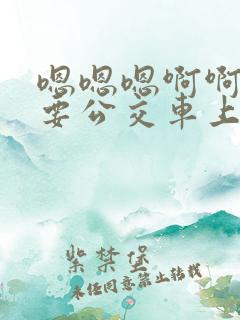 嗯嗯嗯啊啊
要公交車上
紫禁堡
未经同意禁止转载